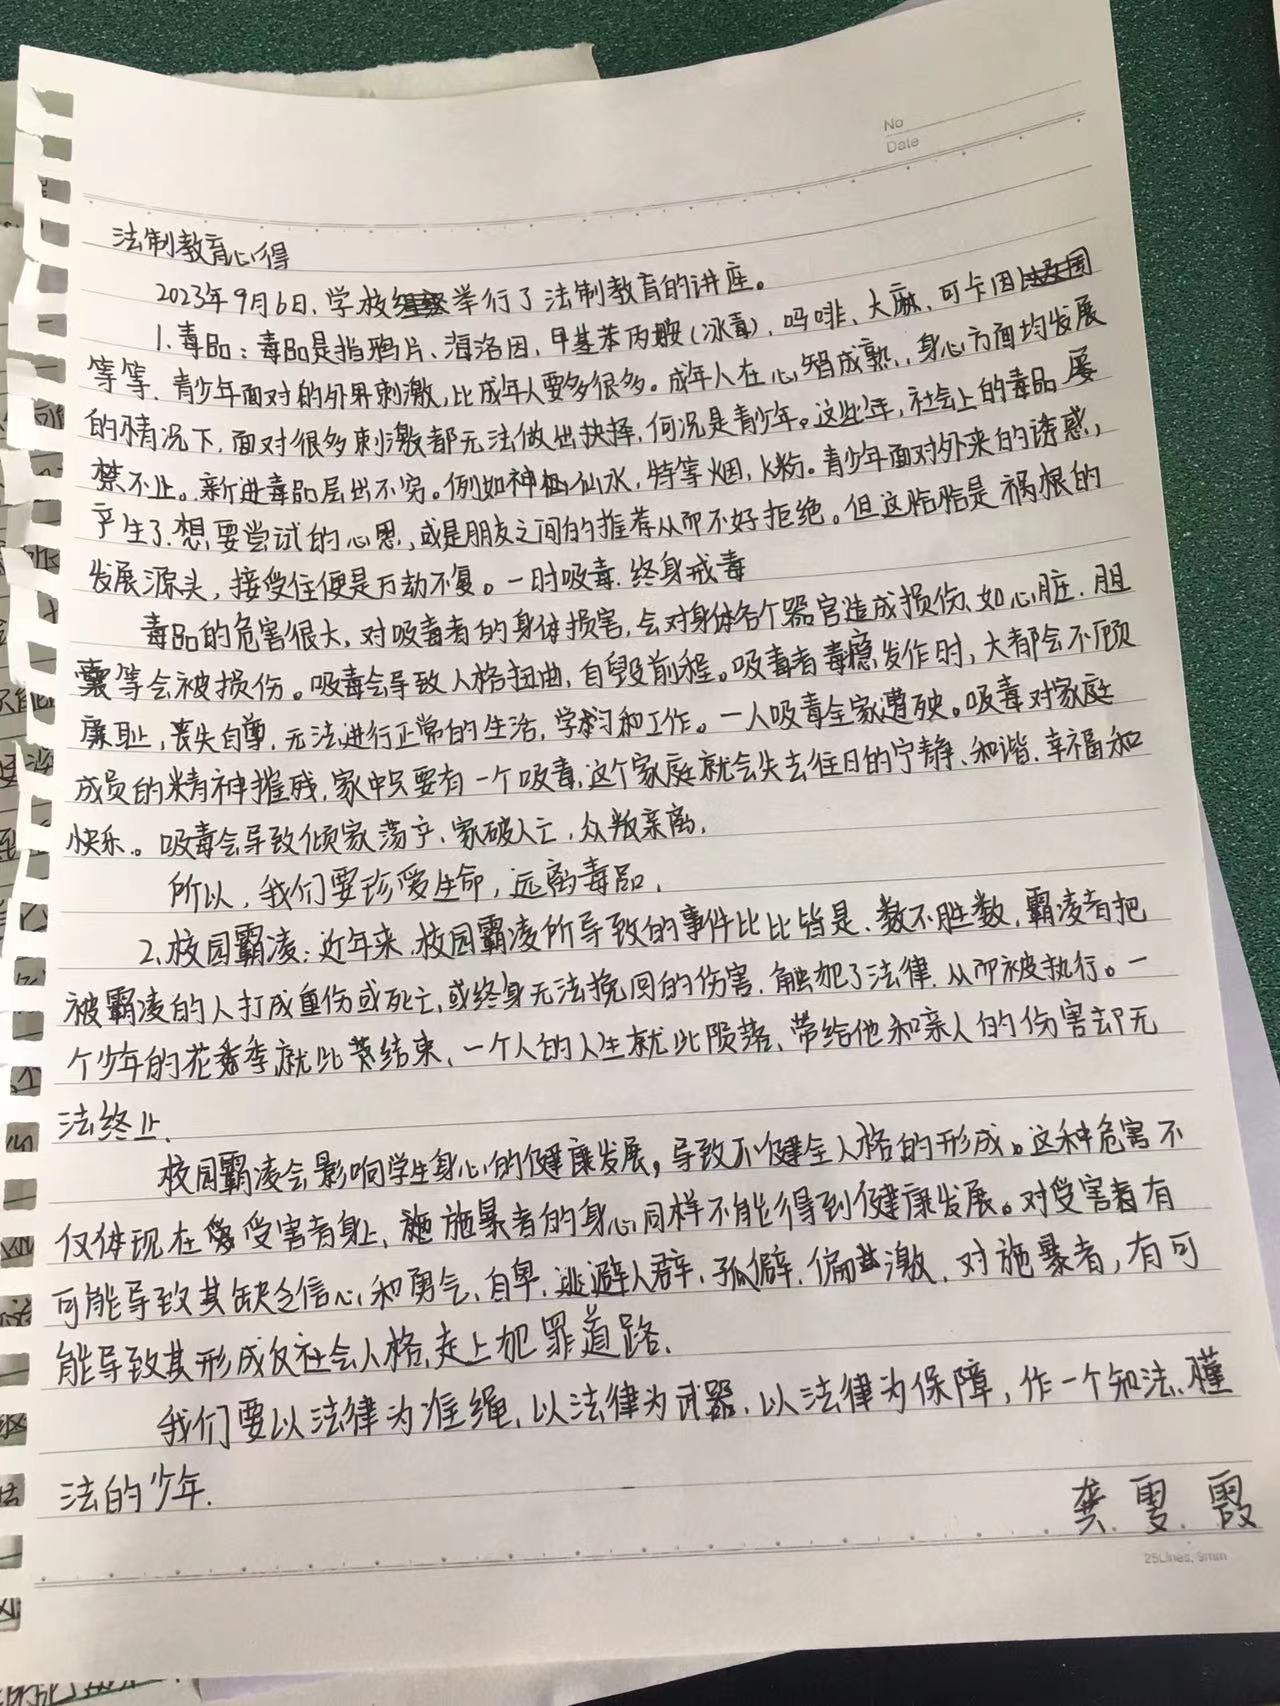 No
Date
法制教育心得
2023年9月6日，学校举行了法制教育的讲座。
1.毒品：毒品是指鸦片、海洛因，甲基苯丙胺（冰毒）、吗啡、大麻、可卡因
等等，青少年面对的外界刺激，比成年人要多很多。成年人在心智成熟，身心方面均发展
的情况下，面对很多刺激都无法做出抉择，何况是青少年。这些年，社会上的毒品屡
禁不止。新进毒品层出不穷。例如神仙水，特等烟，K粉。青少年面对外来的诱惑，
产生了想要尝试的心思，或是朋友之间的推荐从而不好拒绝。但这恰恰是祸根的
发展源头，接受住便是万劫不复。一时吸毒，终身戒毒
毒品的危害很大，对吸毒者的身体损害，会对身体各个器官造成损伤、如心脏，胆
囊等会被损伤。吸毒会导致人格扭曲，自毁前程。吸毒者毒瘾发作时，大都会不顾
廉耻，丧失自尊，无法进行正常的生活，学习和工作。一人吸毒全家遭殃。吸毒对家庭
成员的精神摧残，家中只要有一个吸毒，这个家庭就会失去往日的宁静、和谐，幸福和
快乐。吸毒会导致倾家荡产，家破人亡，众叛亲离，
所以，我们要珍爱生命，远离毒品，
2、校园霸凌：近年来，校园霸凌所导致的事件比比皆是，数不胜数，霸凌者把
被霸凌的人打成重伤或死亡，或终身无法挽回的伤害，触犯了法律，从而被执行。一
个少年的花季就此结束，一个人的人生就此陨落，带给他和亲人的伤害却无
法终止，
校园霸凌会影响学生身心的健康发展，导致不健全人格的形成。这种危害不
仅体现在受害者身上，施暴者的身心同样不能得到健康发展。对受害者有
可能导致其缺乏信心和勇气，自卑，逃避人群，孤僻，偏激，对施暴者，有可
能导致其形成反社会人格，走上犯罪道路，
我们要以法律为准绳，以法律为武器，以法律为保障，作一个知法、懂
法的少年.
龚雯霞
25Lines, 9mm